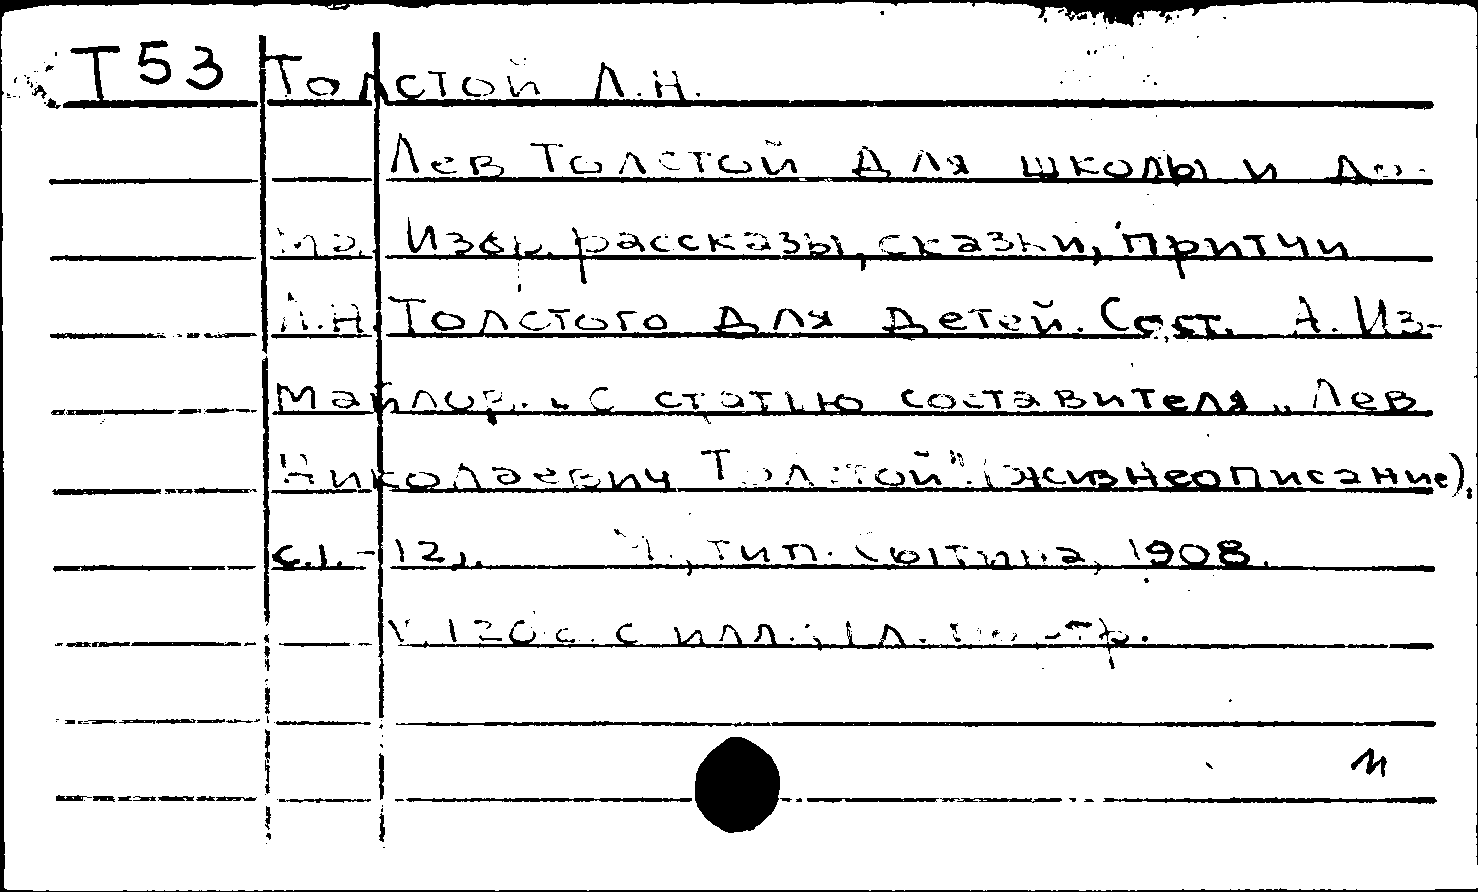 Т53 Толстой Л.Н.
Лев Толстой для школы и до-
ма. Избр. рассказы, сказки, притчи
Л.Н. Толстого для детей. Сост. А. Из-
майлов. С статью составителя „Лев
Николаевич Толстой" (жизнеописание),
с.1.-12). М., тип. Сытина, 1908.
V, 120 с. с илл.; 1 л. портр.